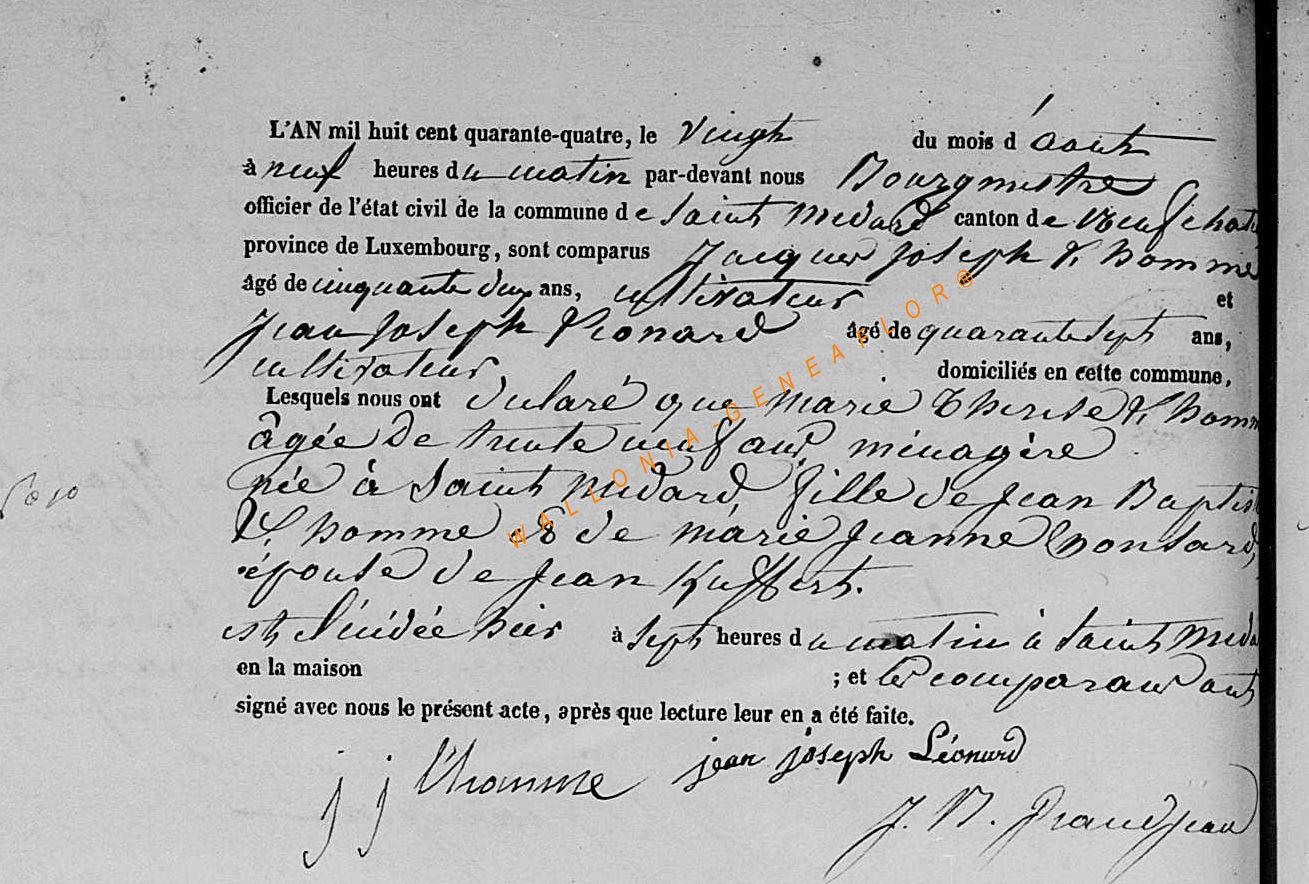 L'AN mil huit cent quarante-quatre, le vingt du mois d'août
à neuf heures du matin par-devant nous Bourgmestre
officier de l'état civil de la commune de Saint Medard canton de Neufchate
province de Luxembourg, sont comparus Jacques Joseph L'homme
âgé de cinquante deux ans, cultivateur et
Jean Joseph Leonard âgé de quarante sept ans,
cultivateur, domiciliés en cette commune,
Lesquels nous ont déclaré que Marie Therese L'homm
âgée de trente neuf ans, ménagère
née à Saint Medard fille de Jean Baptis
L'homme & de marie Jeanne Ponsard,
épouse de Jean Kuffert.
est décédée hier à sept heures du matin à Saint Meda
en la maison ; et les comparans ont
signé avec nous le présent acte, après que lecture leur en a été faite.
j j l'homme jean joseph Léonard
J. B. Grandjean
WALLONIA-GENEAFLOR©